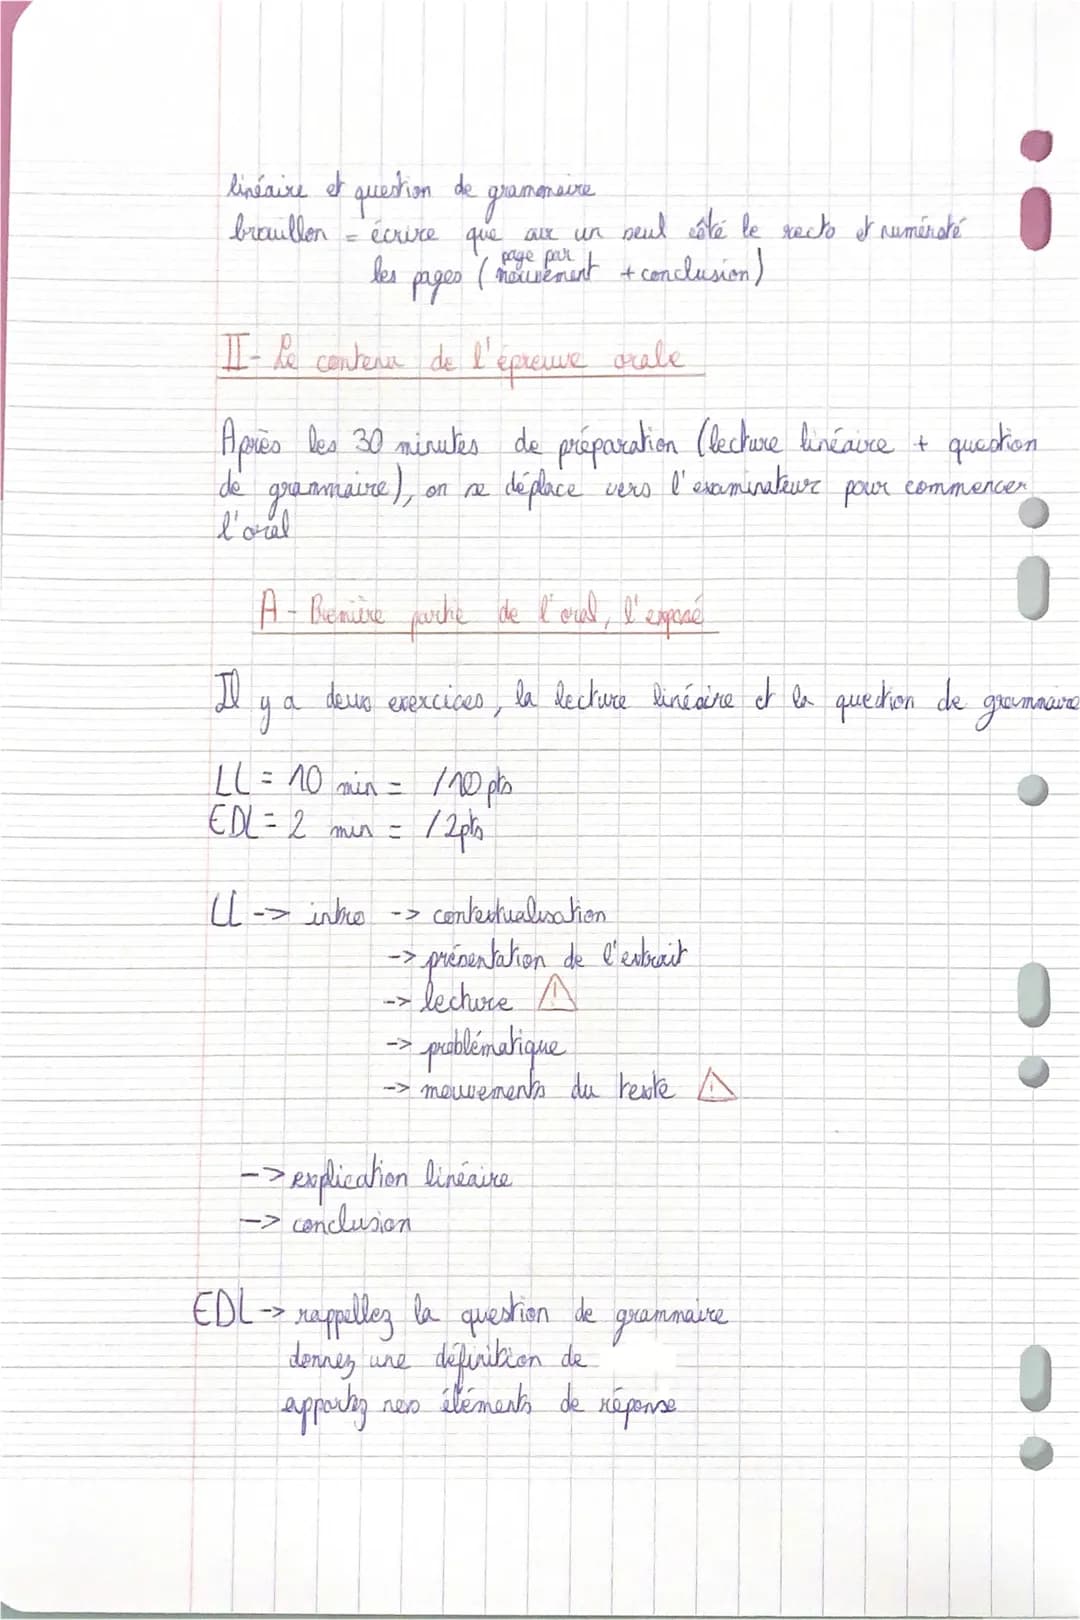 linéaire et question de grammaire
brouillon = écrire que sur un seul côté le recto et numéroté
page par
les pages ( mouvement + conclusion)
II- Le contenu de l'épreuve orale
Après les 30 minutes de préparation (lecture linéaire + question
de grammaire), on se déplace vers l'examinateur pour commencer
l'oral
A - Première partie de l'oral, l'exposé
Il y a deux exercices, la lecture linéaire et la question de grammaire
LL = 10 min = /10 pts
EDL = 2 min = /2pts
LL -> intro -> contextualisation
-> présentation de l'extrait
-> lecture ⚠
-> problématique
-> mouvements du texte ⚠
-> explication linéaire
-> conclusion
EDL -> rappellez la question de grammaire
donnez une définition de
apportez nos éléments de réponse